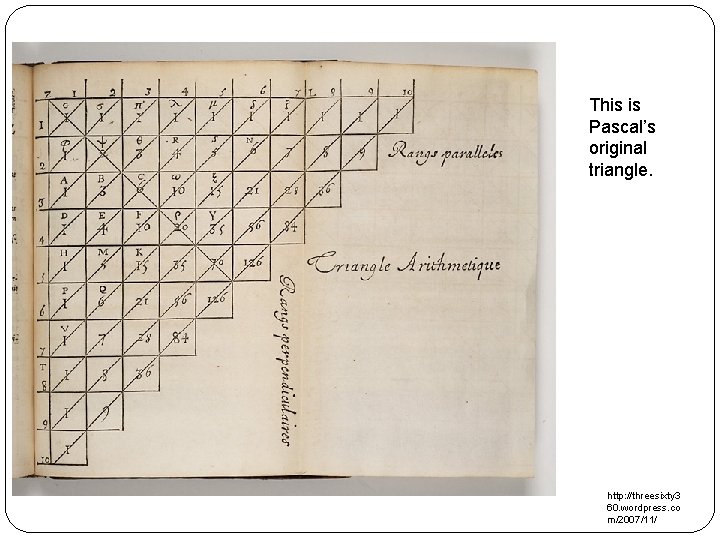 This is
Pascal's
original
triangle.
Z 1 2 3 4 5 6 7 L 8 9 10
G σ π λ μ δ ζ
1 1 1 1 1 1 1 1 1 1 1
φ ψ θ R S N
2 1 2 3 4 5 6 7 8 9 Rangs paralleles
A B C ω ξ
3 1 3 6 10 15 21 28 36
D E F ρ Y
4 1 4 10 20 35 56 84
H M K
5 1 5 15 35 70 126 Triangle Arithmetique
P Q
6 1 6 21 56 126
V
7 1 7 28 84
T
8 1 8 36
9 1 9
10 1
Rangs perpendiculaires
http://threesixty3
60.wordpress.co
m/2007/11/